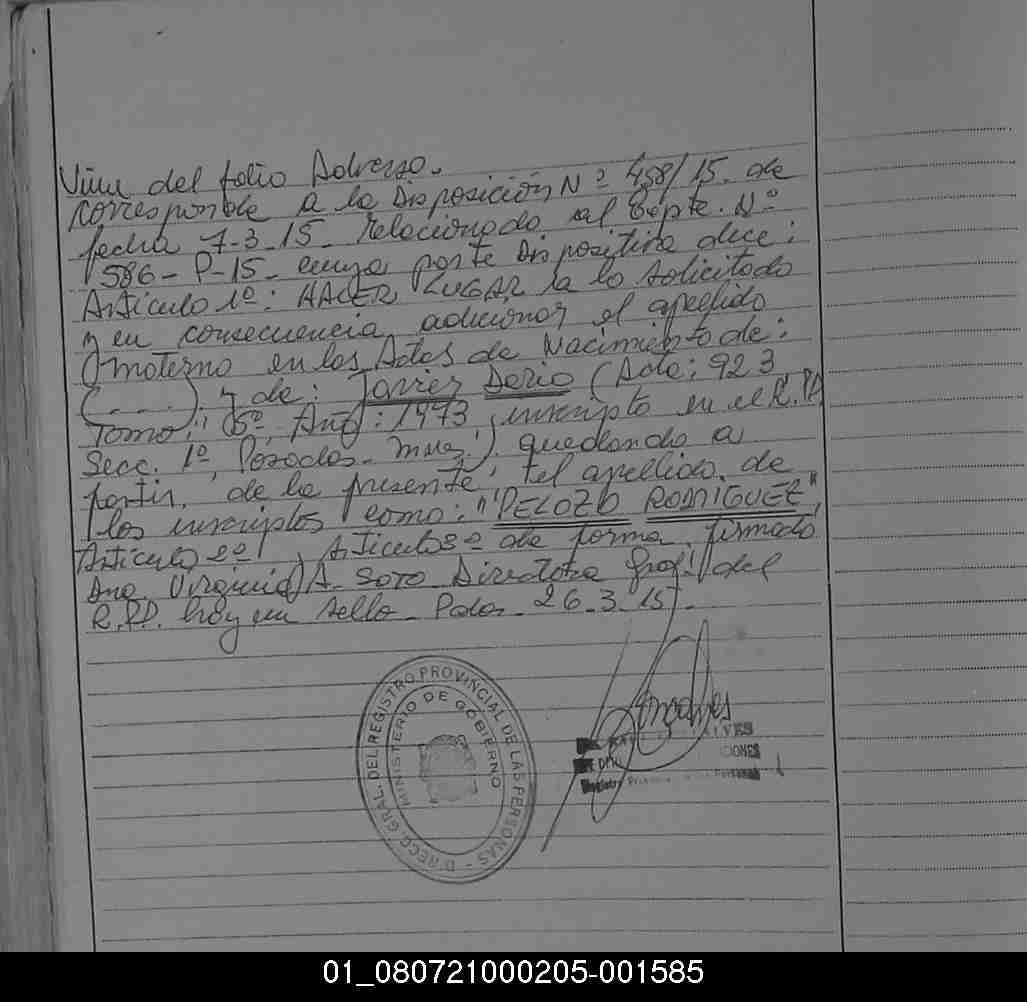 Viene del folio Adverso.
corresponde a la Disposición Nº 458/15. de
fecha 7-3-15. Relacionado al Expte. Nº
586-P-15. cuya parte Dispositiva dice:
Artículo 1º: HACER LUGAR a lo solicitado
y en consecuencia adicionar el apellido
materno en las Actas de Nacimiento de:
(....). y de: Javier Dario (Acta: 923
Tomo: 5º, Año: 1973, inscripto en el R.PP.
Secc. 1º, Posadas-Mnes.). quedando a
partir de la presente, el apellido de
los inscriptos como: "PELOZO RODRIGUEZ",
Artículo 2º, Artículo 3º de forma. firmado
Ana Virginia A. SOTO Directora Gral. del
R.P.P. hay un sello. Pdas. 26.3.15.
DIRECC. GRAL. DEL REGISTRO PROVINCIAL DE LAS PERSONAS
MINISTERIO DE GOBIERNO
01_080721000205-001585